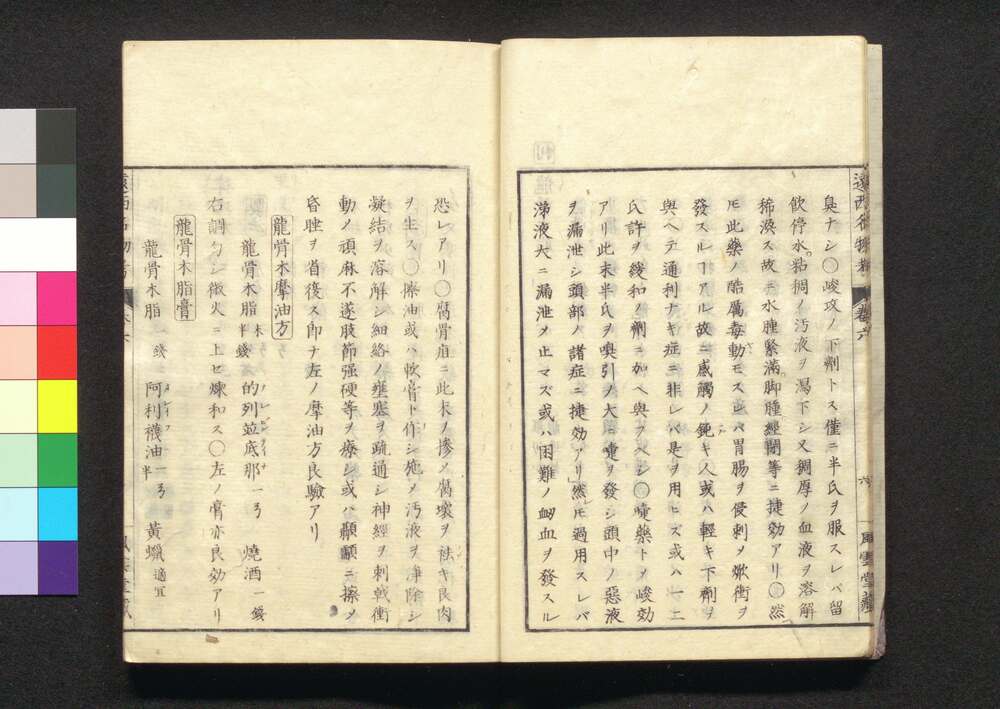 臭ナシ〇峻攻ノ下劑トス僅ニ半氏ヲ服スレバ留
飲停水。粘稠ノ汚液ヲ瀉下シ又稠厚ノ血液ヲ溶解
稀淡ス故ニ水腫緊滿。脚腫經閉等ニ捷効アリ〇然
𪜈此藥ノ酷厲毒動モスレバ胃腸ヲ侵刺〆焮衝ヲ
發スルヿアル故ニ感觸ノ鈍キ人或ハ輕キ下劑ヲ
與ヘテ通利ナキ症ニ非レバ是ヲ用ヒズ或ハ一二
氏許ヲ緩和ノ劑ニ加ヘ與フベシ〇嚏藥ト〆峻効
アリ此末半氏ヲ嗅引ノ大ニ嚏ヲ發シ頭中ノ惡液
ヲ漏泄シ頭部ノ諸症ニ捷効アリ然𪜈過用スレバ
涕液大ニ漏泄〆止マズ或ハ困難ノ衂血ヲ發スル
遠西名物考
卷六
六
風雲堂藏
恐レアリ〇腐骨疽ニ此末ノ摻〆腐壞ヲ祛キ良肉
ヲ生ス〇擦油或ハ軟膏ト作シ貼〆汚液ヲ淨除シ
凝結ヲ溶解シ細絡ノ壅塞ヲ疏通シ神經ヲ刺戟衝
動〆頑麻不遂肢節强硬等ヲ療シ或ハ顳顬ニ擦〆
昏睡ヲ省復ス即チ左ノ摩油方良驗アリ
龍骨木摩油方
龍骨木脂 末半錢 的列並底那 一ゟ 燒酒 一錢
右調匀シ微火ニ上セ煉和ス〇左ノ膏亦良効アリ
龍骨木脂膏
龍骨木脂 錢 阿利襪油 一ゟ半 黃蠟 適宜